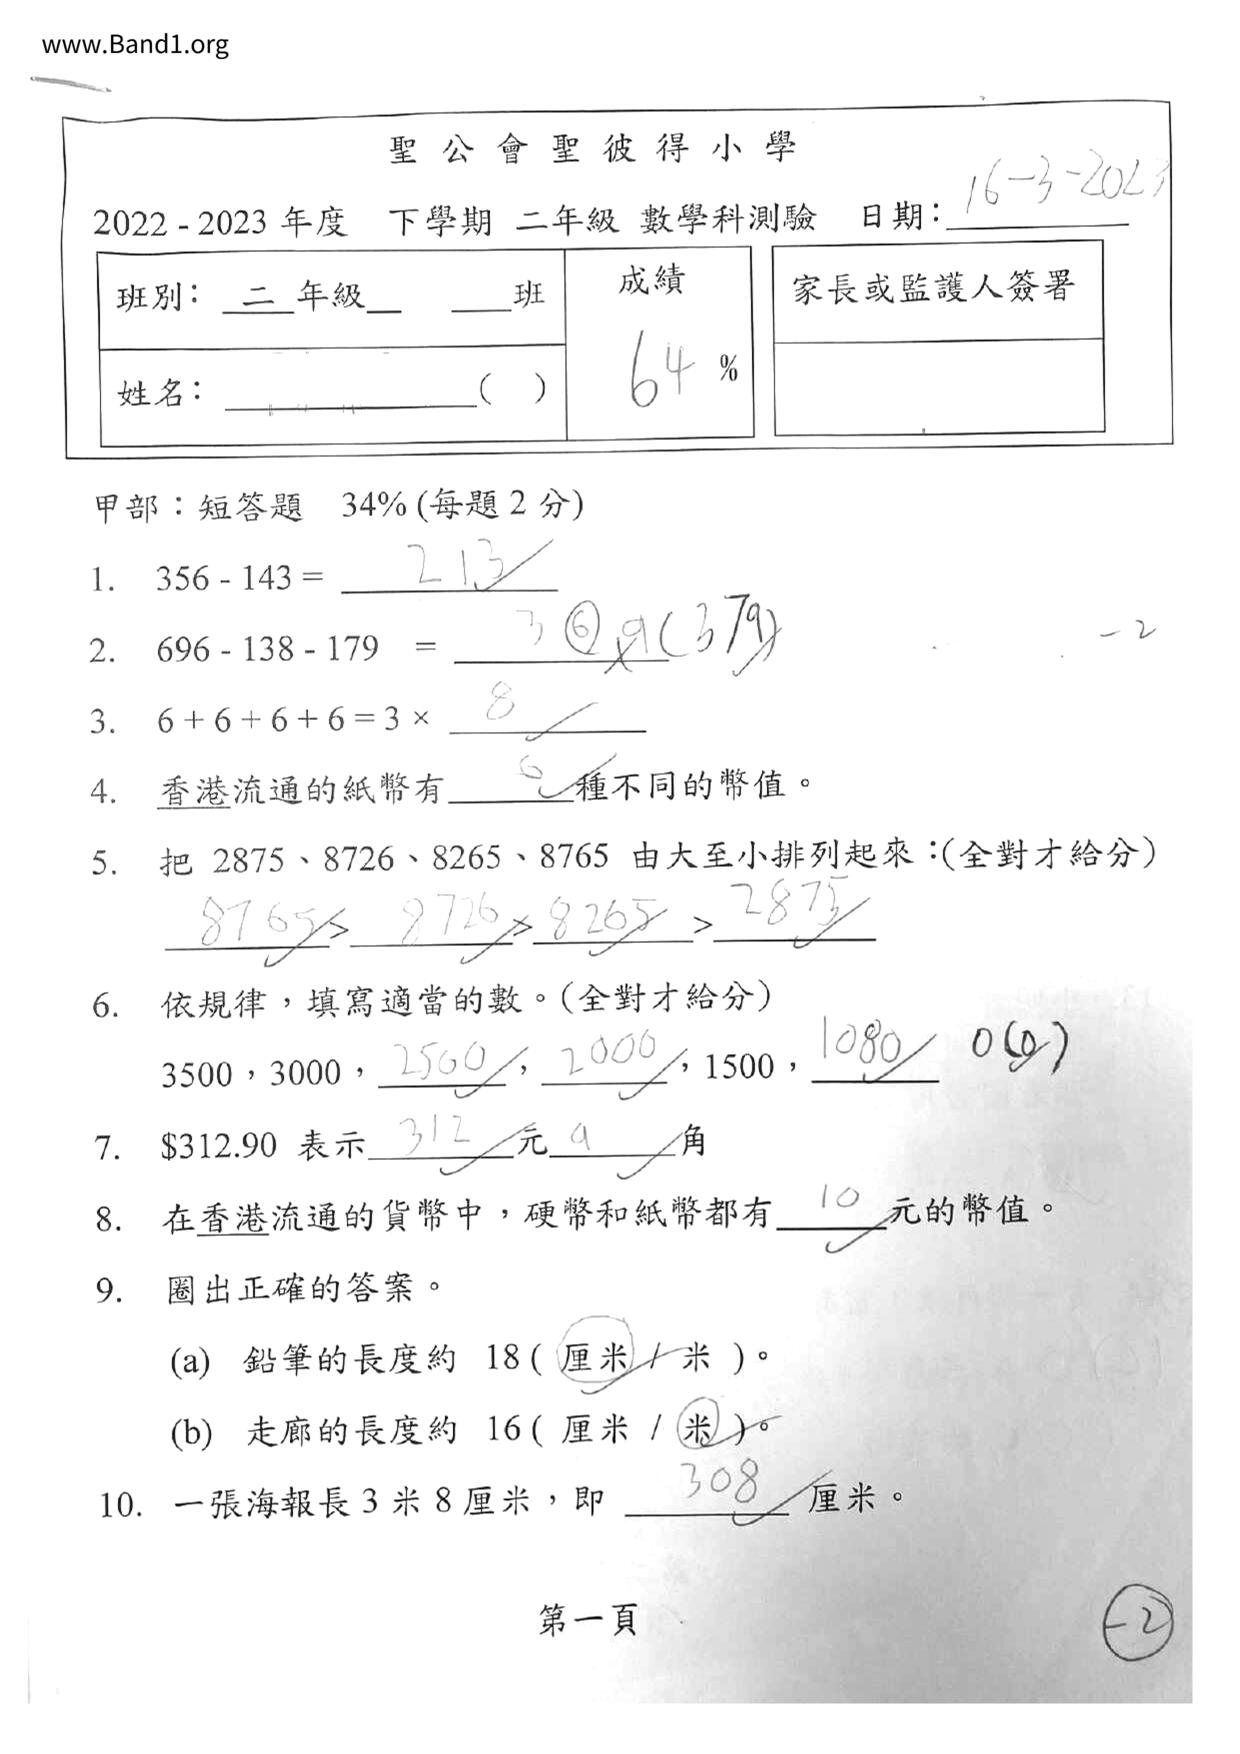 www.Band1.org
聖公會聖彼得小學
2022 - 2023 年度 下學期 二年級 數學科測驗 日期：16-3-2023
班別： 二 年級 班
成績
家長或監護人簽署
64 %
姓名： ( )
甲部：短答題 34% (每題 2 分)
1. 356 - 143 = 213
2. 696 - 138 - 179 = 369 (379)
-2
3. 6 + 6 + 6 + 6 = 3 × 8
4. 香港流通的紙幣有 6 種不同的幣值。
5. 把 2875、8726、8265、8765 由大至小排列起來：(全對才給分)
8765 > 8726 > 8265 > 2875
6. 依規律，填寫適當的數。(全對才給分)
3500，3000，2500，2000，1500，1080 0(0)
7. $312.90 表示 312 元 9 角
8. 在香港流通的貨幣中，硬幣和紙幣都有 10 元的幣值。
9. 圈出正確的答案。
(a) 鉛筆的長度約 18 ( 厘米 / 米 )。
(b) 走廊的長度約 16 ( 厘米 / 米 )。
10. 一張海報長 3 米 8 厘米，即 308 厘米。
第一頁
-2